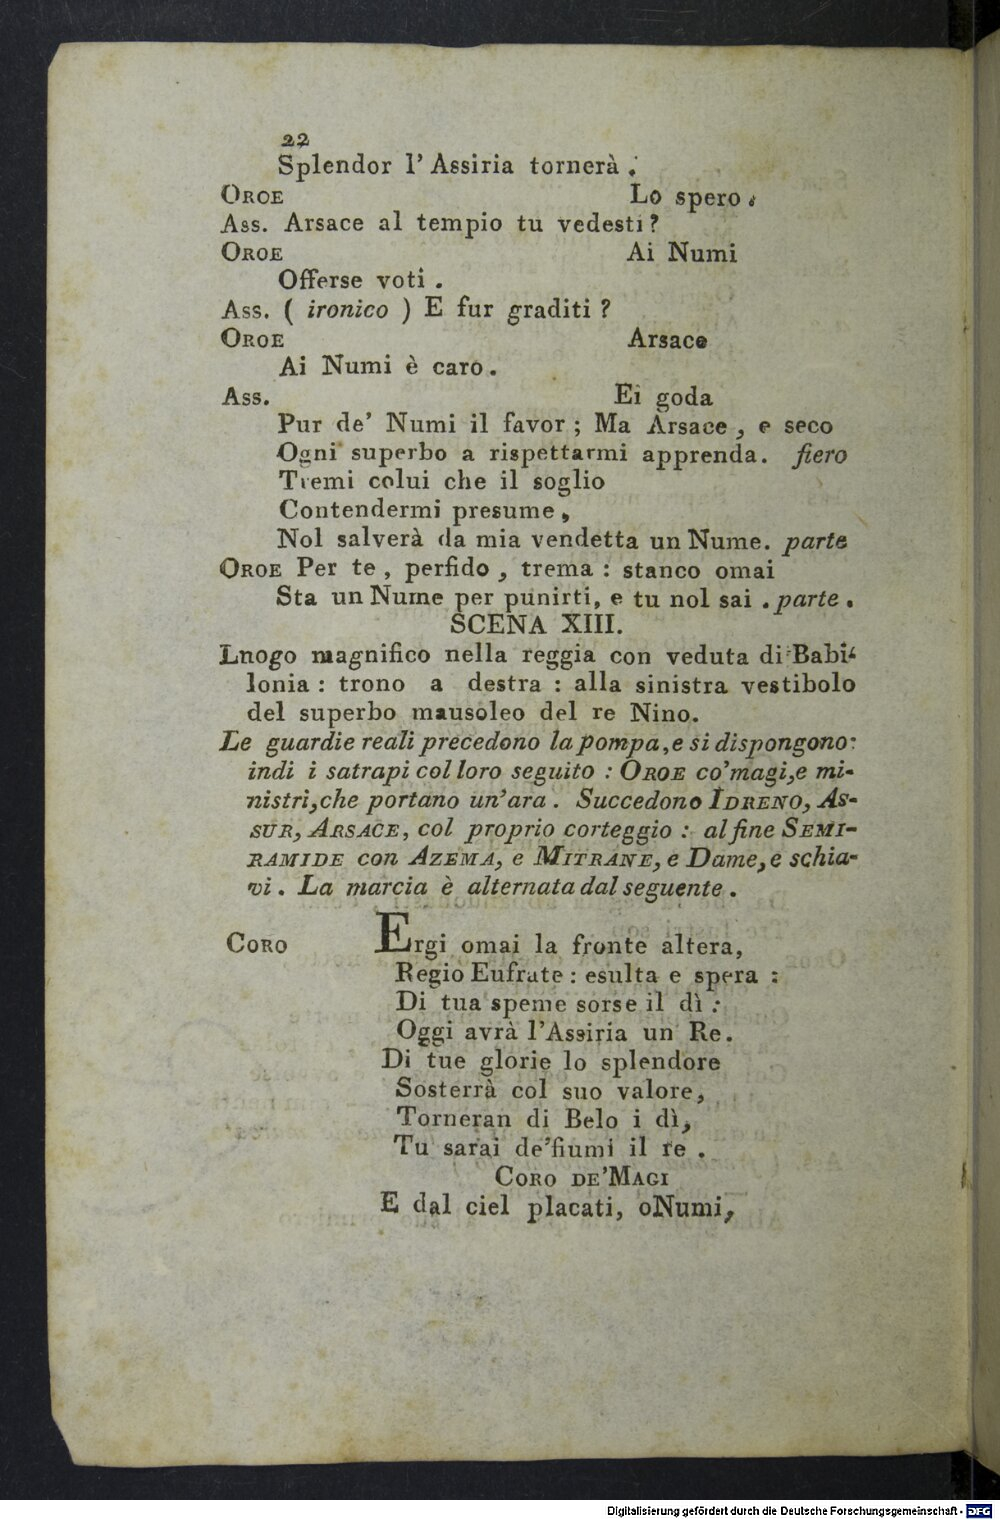 22
Splendor l' Assiria tornerà .
OROE Lo spero .
Ass. Arsace al tempio tu vedesti ?
OROE Ai Numi
Offerse voti .
Ass. ( ironico ) E fur graditi ?
OROE Arsace
Ai Numi è caro .
Ass. Ei goda
Pur de' Numi il favor ; Ma Arsace , e seco
Ogni superbo a rispettarmi apprenda. fiero
Tremi colui che il soglio
Contendermi presume ,
Nol salverà da mia vendetta un Nume. parte
OROE Per te , perfido , trema : stanco omai
Sta un Nume per punirti, e tu nol sai . parte .
SCENA XIII.
Lnogo magnifico nella reggia con veduta di Babi-
lonia : trono a destra : alla sinistra vestibolo
del superbo mausoleo del re Nino.
Le guardie reali precedono la pompa, e si dispongono:
indi i satrapi col loro seguito : OROE co' magi, e mi-
nistri, che portano un' ara . Succedono IDRENO, AS-
SUR, ARSACE, col proprio corteggio : al fine SEMI-
RAMIDE con AZEMA, e MITRANE, e Dame, e schia-
vi . La marcia è alternata dal seguente .
CORO Ergi omai la fronte altera,
Regio Eufrate : esulta e spera :
Di tua speme sorse il dì :
Oggi avrà l'Assiria un Re.
Di tue glorie lo splendore
Sosterrà col suo valore,
Torneran di Belo i dì,
Tu sarai de' fiumi il re .
CORO DE' MAGI
E dal ciel placati, oNumi,
Digitalisierung gefördert durch die Deutsche Forschungsgemeinschaft - DFG